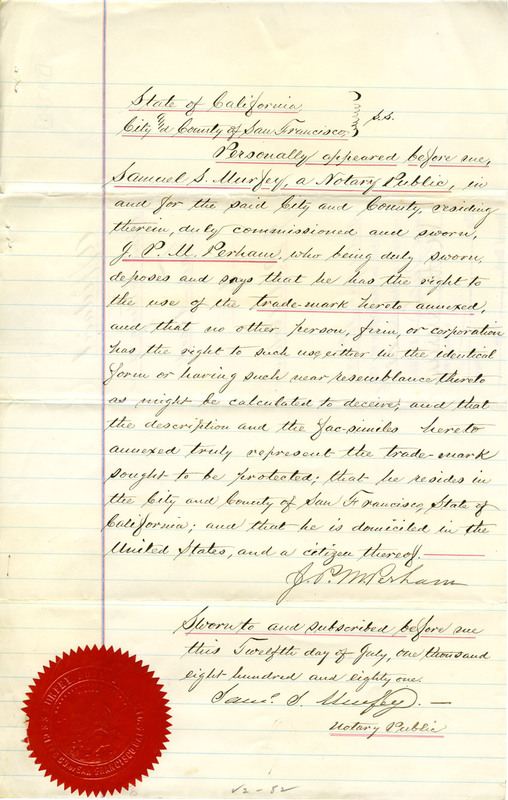 State of California } s.s.
City & County of San Francisco
Personally appeared before me,
Samuel S. Murfey, a Notary Public, in
and for the said City and County, residing
therein, duly commissioned and sworn,
J. P. M. Perham, who being duly sworn,
deposes and says that he has the right to
the use of the trade-mark hereto annexed,
and that no other person, firm, or corporation
has the right to such use, either in the identical
form or having such near resemblance thereto
as might be calculated to deceive; and that
the description and the fac-similes hereto
annexed truly represent the trade-mark
sought to be protected; that he resides in
the City and County of San Francisco, State of
California; and that he is domiciled in the
United States, and a citizen thereof.
J. P. M Perham
Sworn to and subscribed before me
this Twelfth day of July, one thousand
eight hundred and eighty one.
Saml. S. Murfey.
Notary Public